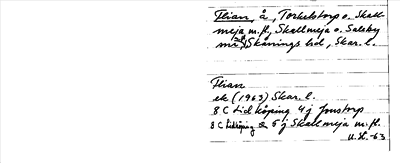 Flian, å, Torkelstorp o. Skall-
meja m.fl., Skallmeja o. Saleby
m.fl., Skånings hd, Skar. l.
Flian
ek (1963) Skar. l.
8 C Lidköping 4 j Jonstorp
8 C Lidköping 5 j Skallmeja m.fl.
-63